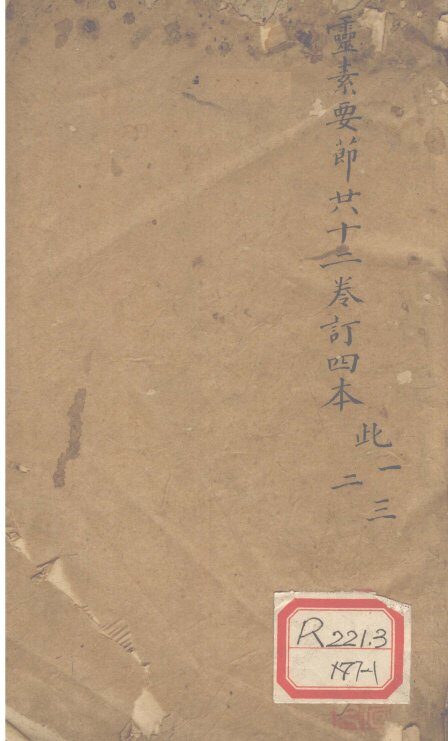 靈素要節共十二卷訂四本
此一
二
三
R221.3
177-1